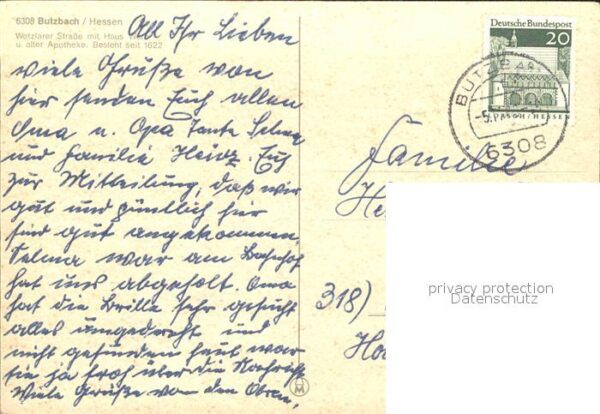 6308 Butzbach / Hessen
Wetzlarer Straße mit Haus
u. alter Apotheke. Besteht seit 1622
All Ihr Lieben
viele Grüße von
hier senden Euch allen
Oma u. Opa Tante Selma
und Familie Heinz. Euch
zur Mitteilung, daß wir
gut und pünktlich hier
sind gut angekommen,
Selma war am Bahnhof
hat uns abgeholt. Oma
hat die Brille sehr gesucht
alles umgedreht und
nicht gefunden heut war
sie ja froh über die Nachricht
Viele Grüße von den Obren.
Deutsche Bundespost
20
LORSCH / HESSEN
BUTZBACH
6308
Familie
318)
privacy protection
Datenschutz